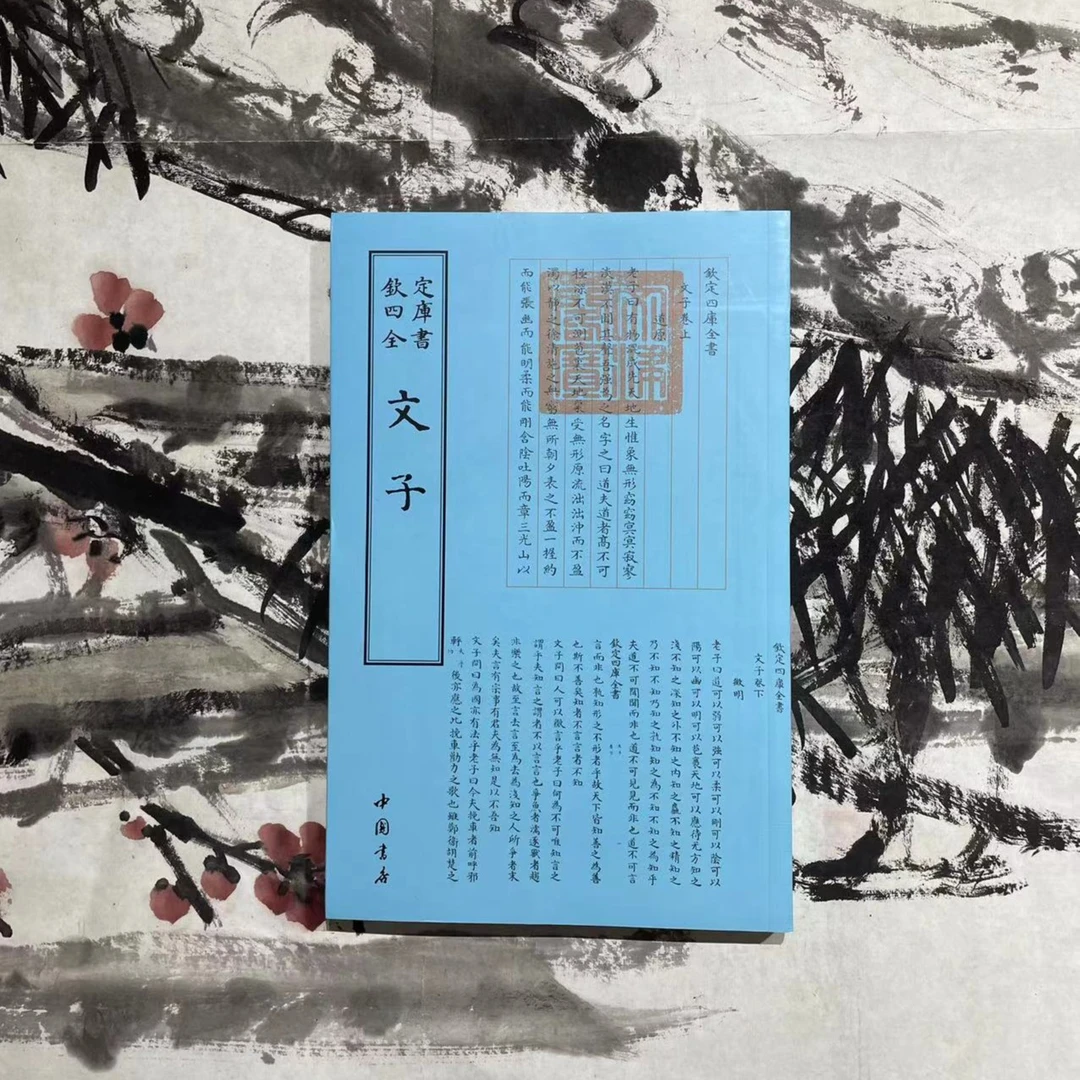 欽定
四庫
全書
文子
中國書店
欽定四庫全書
文子卷上
道原
老子曰有物混成先天地生惟象無形窈窈冥冥寂寥
淡漠不聞其聲吾强為之名字之曰道夫道者高不可
極深不可測苞裹天地稟受無形原流泏泏沖而不盈
濁以靜之徐清施之無窮無所朝夕表之不盈一握約
而能張幽而能明柔而能剛含陰吐陽而章三光山以
欽定四庫全書
文子卷下
微明
老子曰道可以弱可以強可以柔可以剛可以陰可以
陽可以幽可以明可以苞裹天地可以應待无方知之
淺不知之深知之外不知之内知之麤不知之精知之
乃不知不知乃知之孰知知之為不知不知之為知乎
夫道不可聞聞而非也道不可見見而非也道不可言
欽定四庫全書
言而非也孰知形之不形者乎故天下皆知善之為善
也斯不善矣知者不言言者不知
文子問曰人可以微言乎老子曰何為不可唯知言之
謂乎夫知言之謂者不以言言也爭魚者濡逐獸者趨
非樂之也故至言去言至為去為淺知之人所爭者末
矣夫言有宗事有君夫為無知是以不吾知
文子問曰為國亦有法乎老子曰今夫挽車者前呼邪
軤後亦應之此挽車勸力之歌也雖鄭衛胡楚之